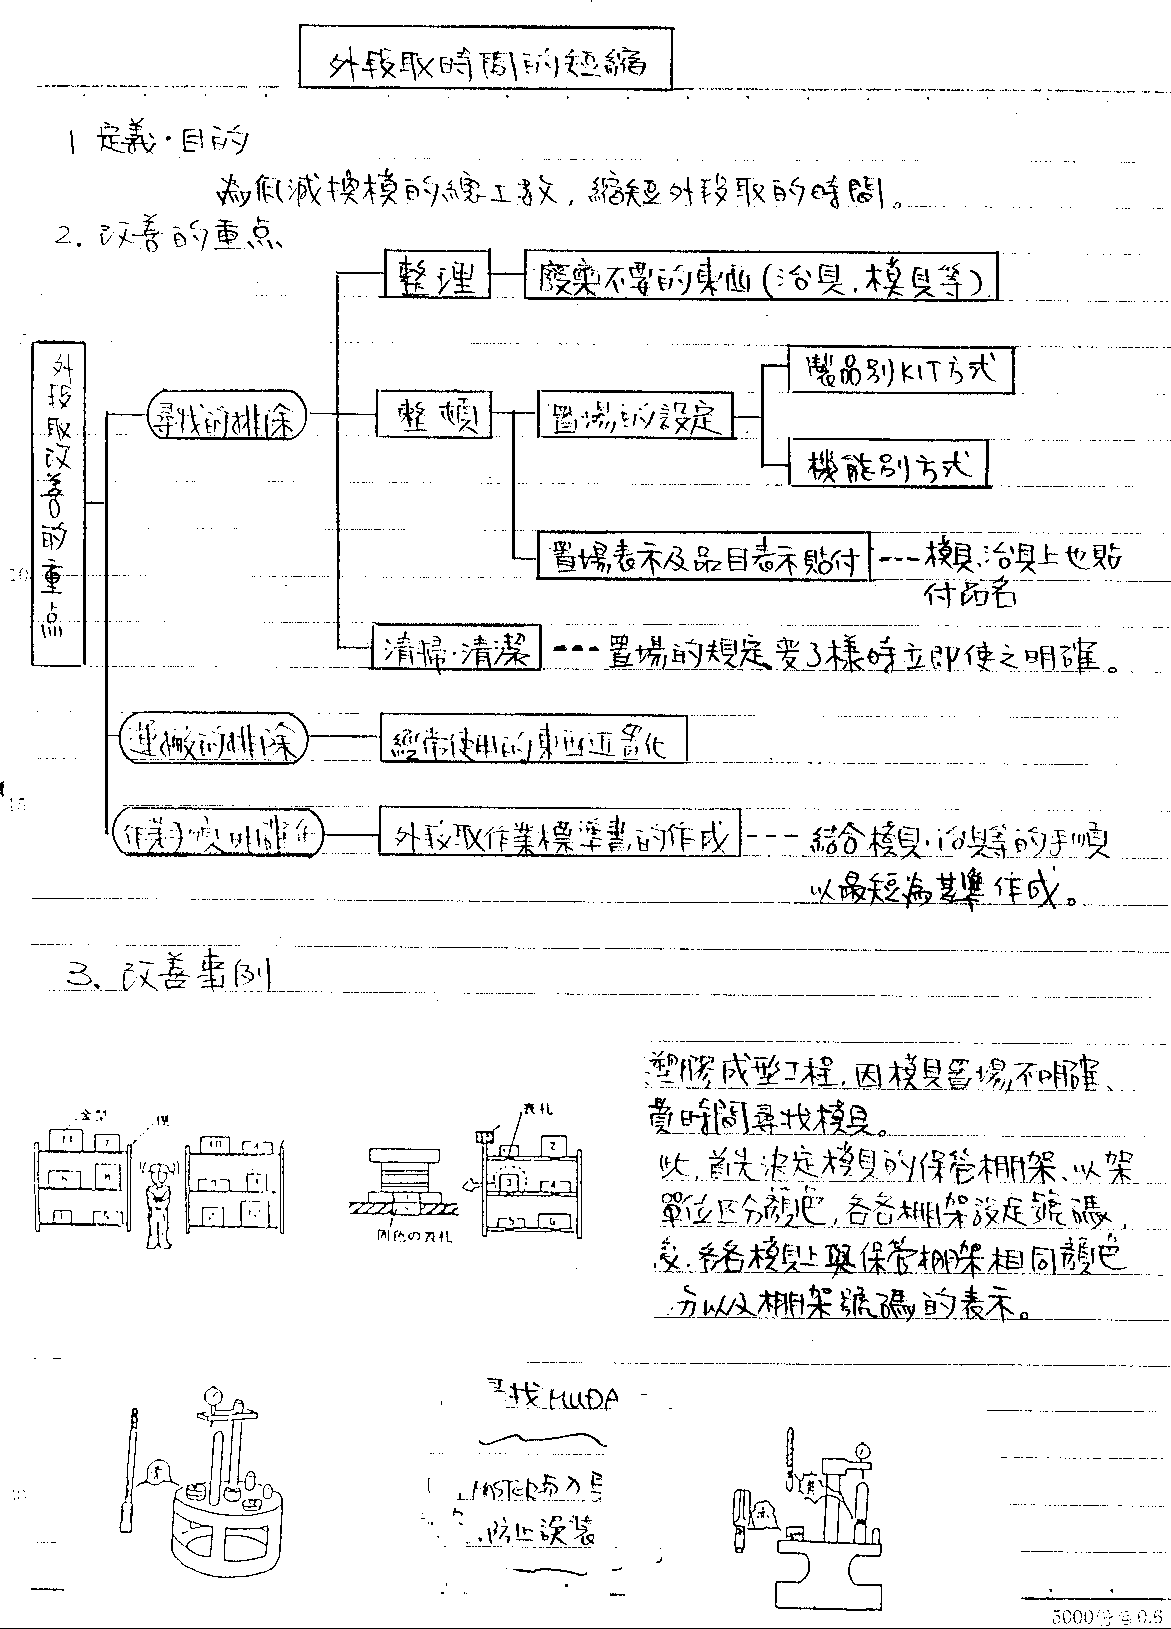 外段取時間的短縮
1 定義・目的
為低減換模的總工數，縮短外段取的時間。
2. 改善的重点
外段取改善的重点
尋找的排除
整理
廢棄不要的東西(治具.模具等)
整頓
置場的設定
製品別KIT方式
機能別方式
置場表示及品目表示貼付
---模具.治具上也貼
付品名
清掃·清潔
---置場的規定變了樣時立即使之明確。
運搬的排除
經常使用的東西近置化
作業手順明確化
外段取作業標準書的作成
---結合模具·治具等的手順
以最短為基準作成。
3. 改善事例
塑膠成型工程，因模具置場不明確、
費時間尋找模具。
此，首先決定模具的保管棚架、以架
單位区分顏色，各各棚架設定號碼，
各各模具上與保管棚架相同顏色
分以及棚架號碼的表示。
金型
棚
表札
同色の表札
尋找MUDA
MASTER
防止誤裝